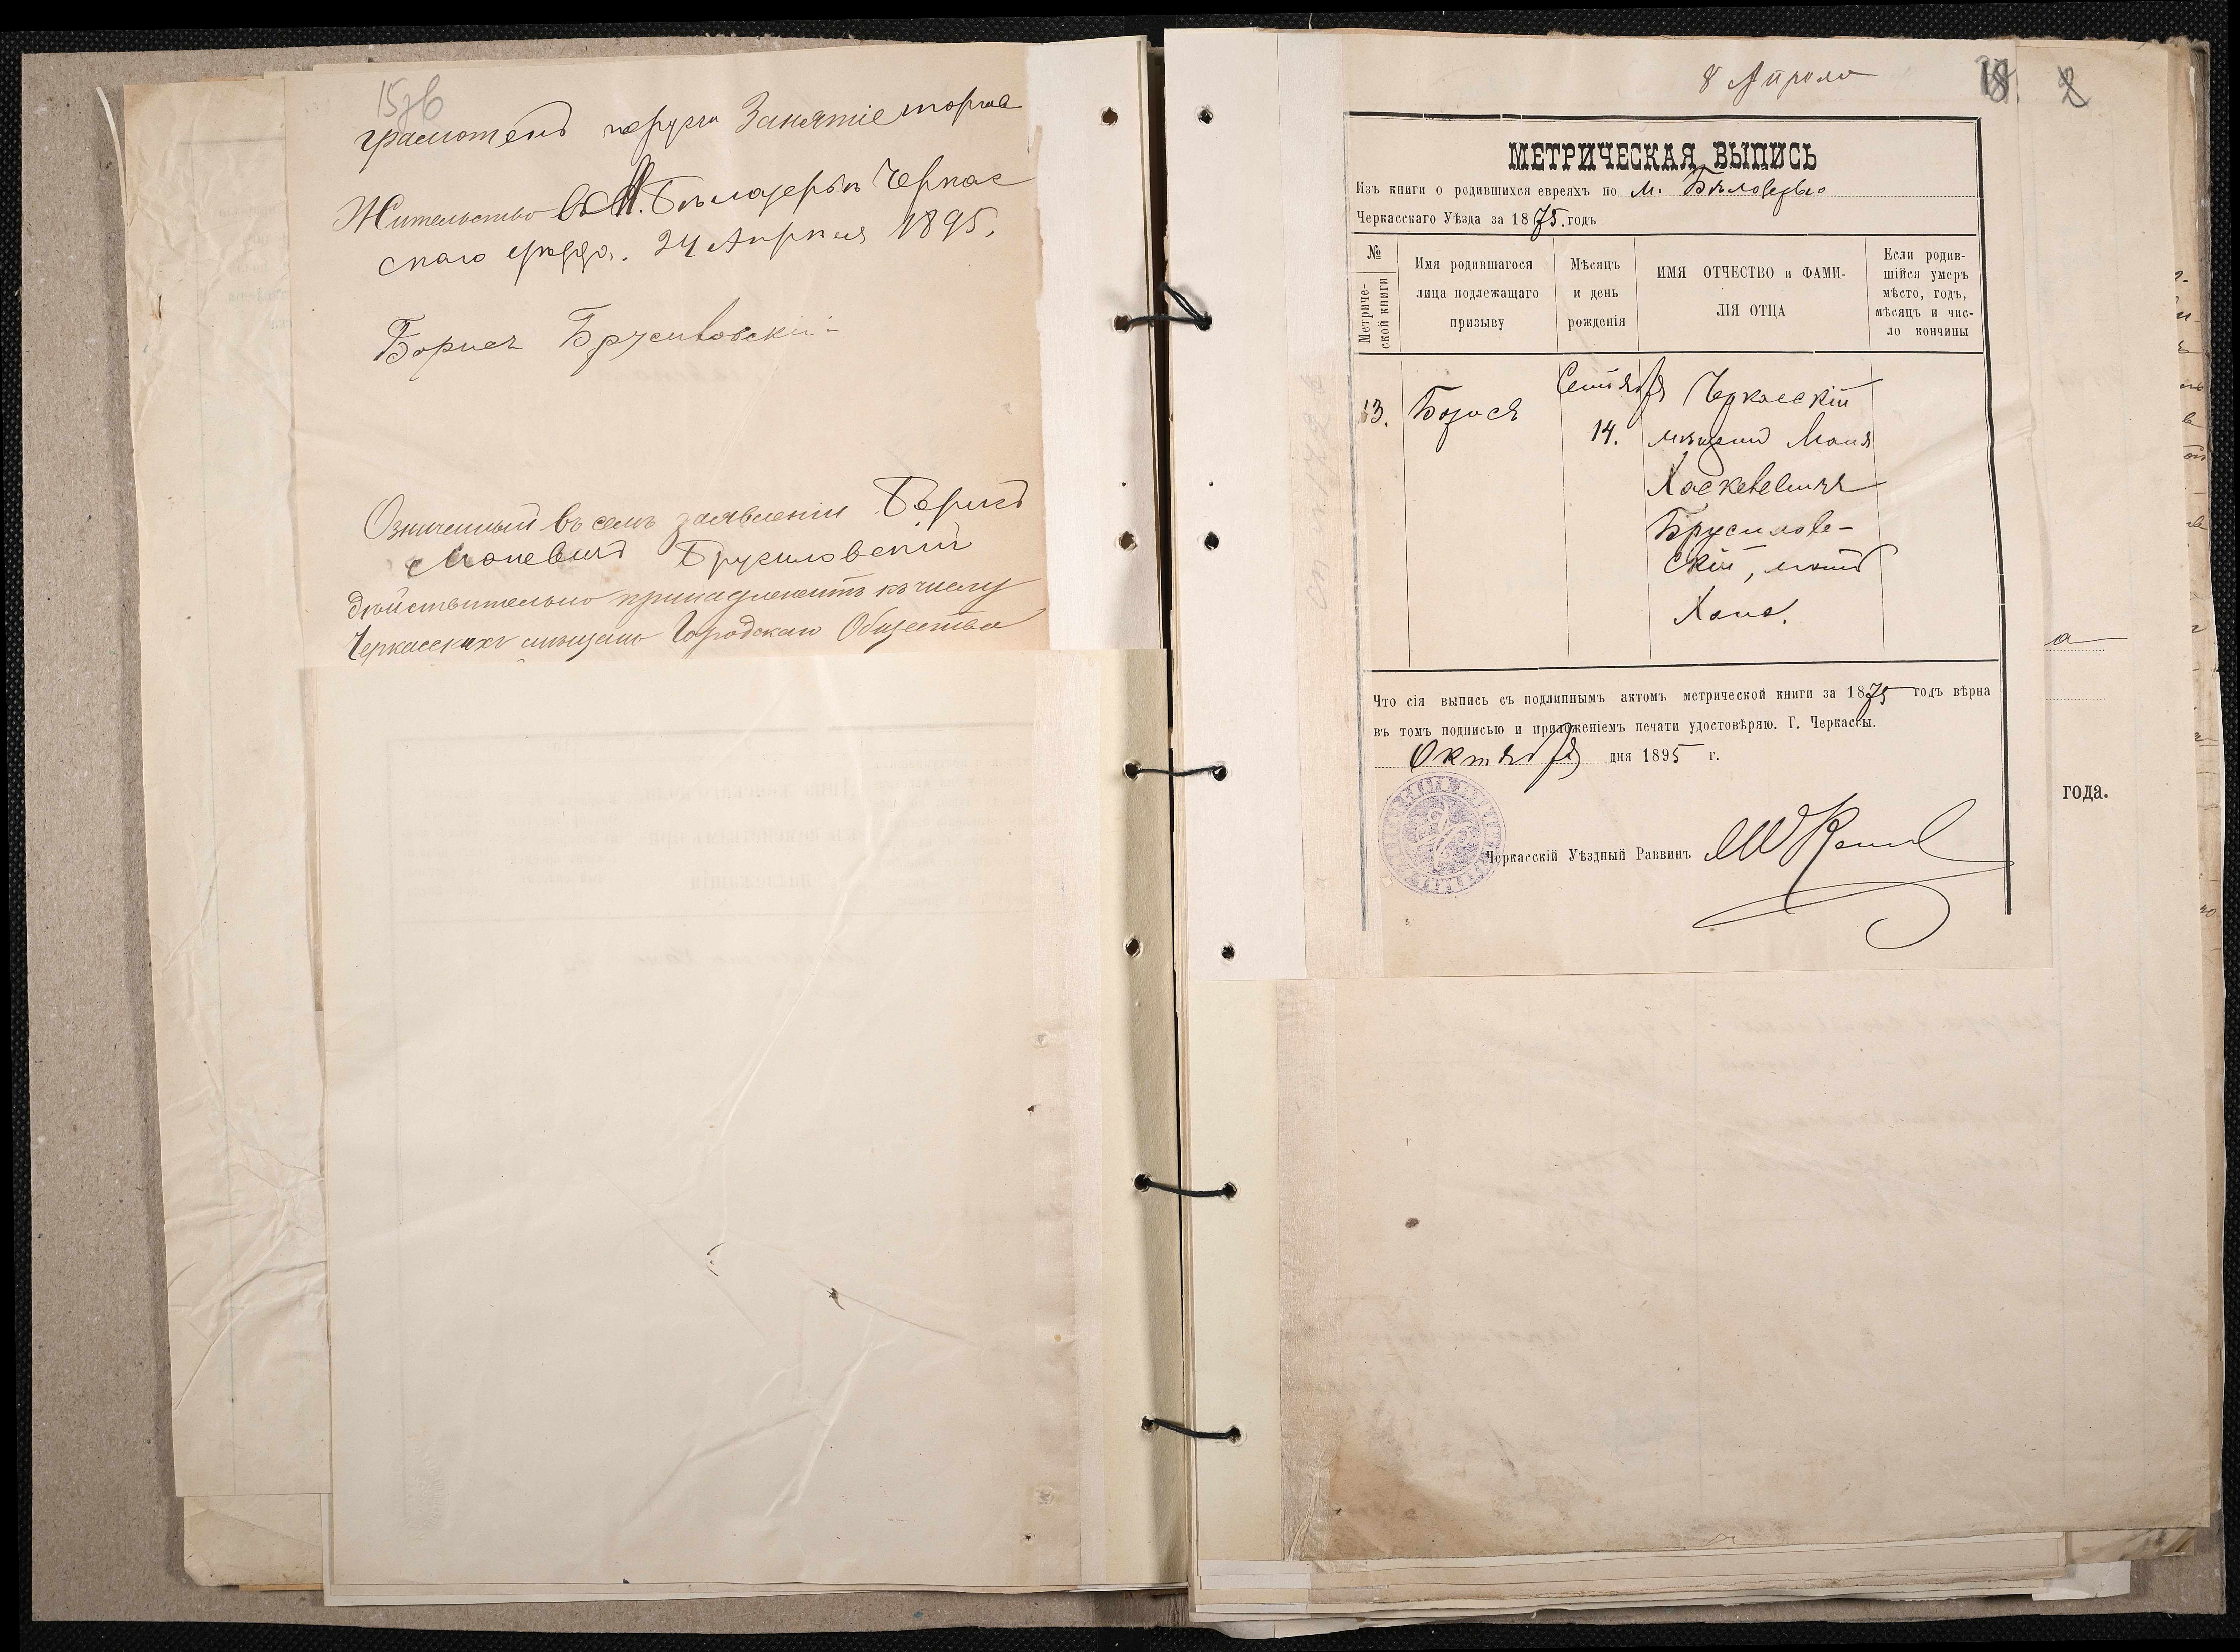 грамотенъ порусски Занятіе торгов
Жительство въ М. Бѣлозерьѣ Черкас
скаго уѣзда. 24 Апрѣля 1895.
Борисъ Брусиловскій
Означенный въ семъ заявленіи Борисъ
Моневичъ Брусиловскій
дѣйствительно принадлежитъ къ числу
Черкасскихъ мѣщанъ Городскаго Общества
8 Апрѣля
18. 2
МЕТРИЧЕСКАЯ ВЫПИСЬ
Изъ книги о родившихся евреяхъ по м. Бѣлозерью
Черкасскаго Уѣзда за 1875 годъ
№ Метриче-
ской книги
Имя родившагося
лица подлежащаго
призыву
Мѣсяцъ
и день
рожденія
ИМЯ ОТЧЕСТВО и ФАМИ-
ЛІЯ ОТЦА
Если родив-
шійся умеръ
мѣсто, годъ,
мѣсяцъ и чис-
ло кончины
13. Борисъ
Сентября
14.
Черкасскій
мѣщанинъ Моня
Хаскелевичъ
Брусилов-
скій, мать
Хана.
Что сія выпись съ подлиннымъ актомъ метрической книги за 1875 годъ вѣрна
въ томъ подписью и приложеніемъ печати удостовѣряю. Г. Черкассы.
Октября дня 1895 г.
Черкасскій Уѣздный Раввинъ
года.